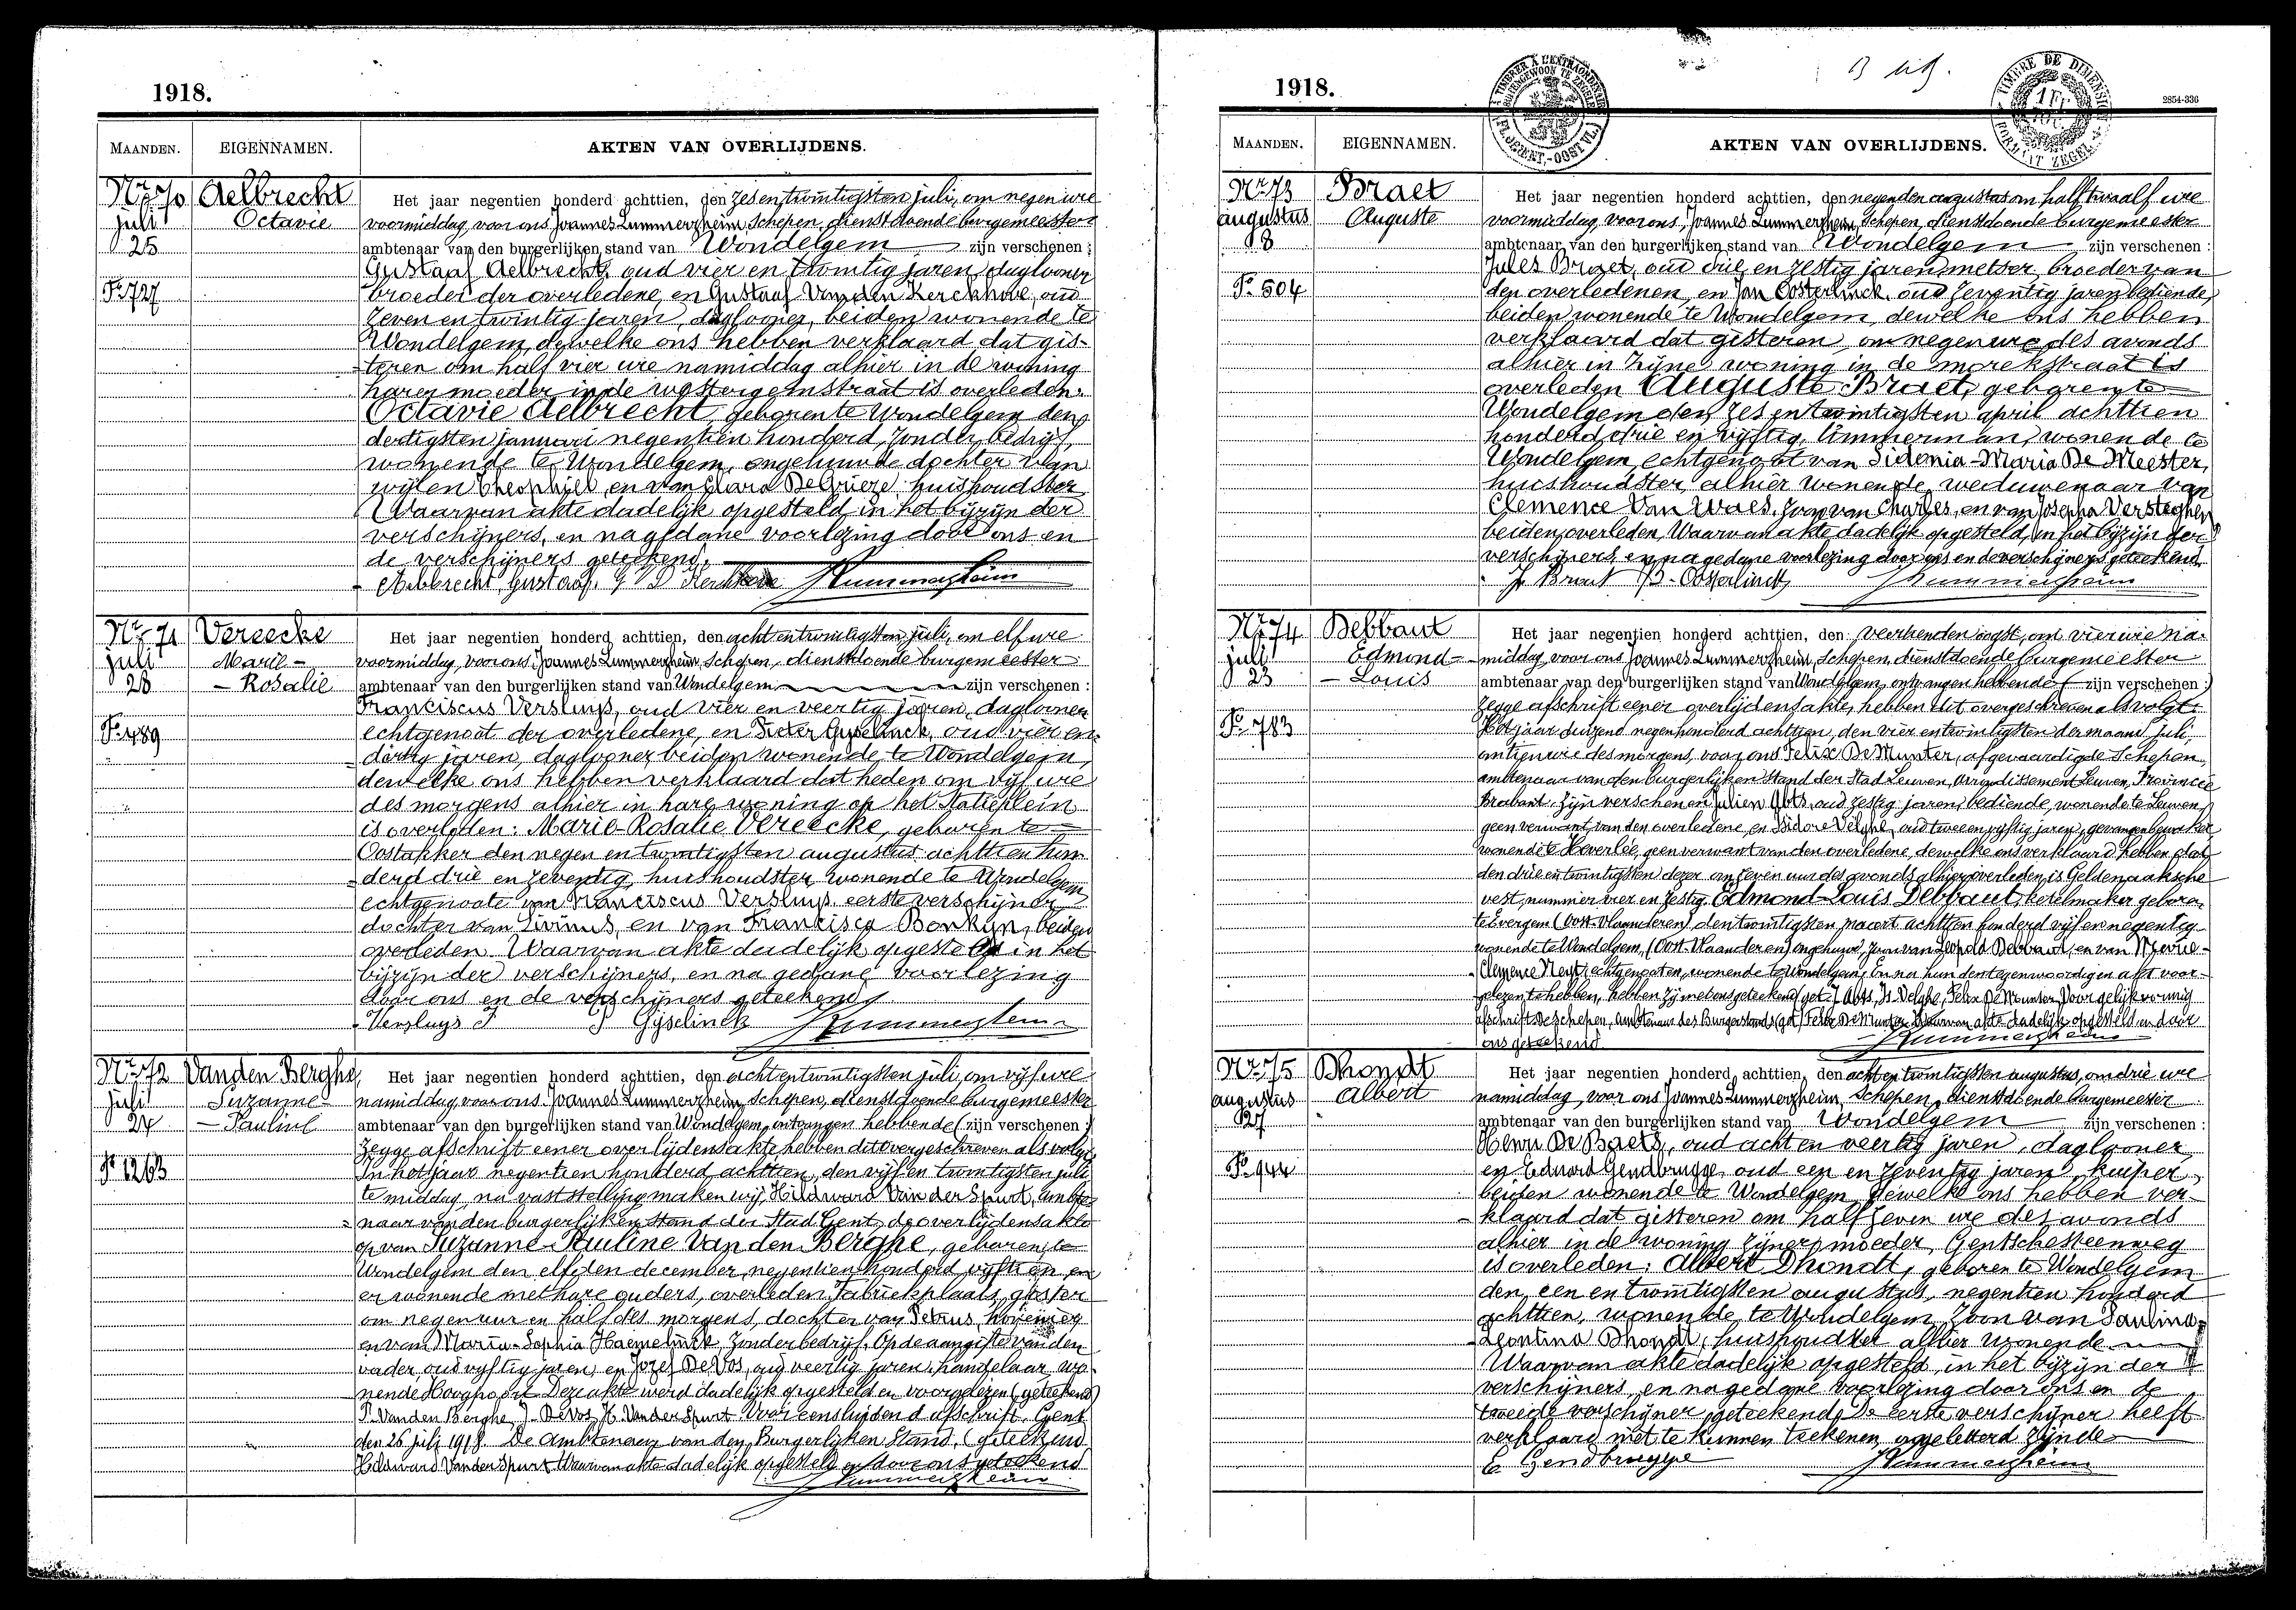 1918.
MAANDEN. EIGENNAMEN. AKTEN VAN OVERLIJDENS.
Nr 70 Aelbrecht Het jaar negentien honderd achttien, den zes en twintigsten juli, om negen ure
juli Octavie voormiddag, voor ons Joannes Lummerzheim, Schepen, dienstdoende burgemeester
25 ambtenaar van den burgerlijken stand van Wondelgem zijn verschenen:
Gustaaf Aelbrecht, oud vier en twintig jaren, daglooner
Fo 727 broeder der overledene, en Gustaaf Van den Kerckhove, oud
zeven en twintig jaren, daglooner, beiden wonende te
Wondelgem, dewelke ons hebben verklaard dat gis-
teren om half vier ure namiddag alhier in de woning
harer moeder in de westergemstraat is overleden:
Octavie Aelbrecht, geboren te Wondelgem den
dertigsten januari negentien honderd, zonder bedrijf,
wonende te Wondelgem, ongehuwde dochter van
wijlen Theophiel, en van Clara De Grieze, huishoudster
Waarvan akte dadelijk opgesteld in het bijzijn der
verschijners, en na gedane voorlezing door ons en
de verschijners geteekend.
Aelbrecht Gustaaf. G V D Kerckhove Lummerzheim
Nr 71 Vereecke Het jaar negentien honderd achttien, den acht en twintigsten juli, om elf ure
juli Marie- voormiddag, voor ons Joannes Lummerzheim, Schepen, dienstdoende burgemeester
28 - Rosalie ambtenaar van den burgerlijken stand van Wondelgem zijn verschenen:
Franciscus Versluys, oud vier en veertig jaren, daglooner
Fo 489 echtgenoot der overledene, en Pieter Gyselinck, oud vier en
dertig jaren, daglooner beiden wonende te Wondelgem,
dewelke ons hebben verklaard dat heden om vijf ure
des morgens alhier in hare woning op het Statieplein
is overleden: Marie-Rosalie Vereecke, geboren te
Oostakker den negen en twintigsten augustus achttien hon-
derd drie en zeventig, huishoudster, wonende te Wondelgem
echtgenoote van Franciscus Versluys, eerste verschijner
dochter van Livinus, en van Francisca Bonkyn, beiden
overleden. Waarvan akte dadelijk opgesteld in het
bijzijn der verschijners, en na gedane voorlezing
door ons en de verschijners geteekend.
Versluys F P Gijselinck Lummerzheim
Nr 72 Vanden Berghe, Het jaar negentien honderd achttien, den acht en twintigsten juli, om vijf ure
juli Suzanne- namiddag, voor ons Joannes Lummerzheim, Schepen, dienstdoende burgemeester
24 - Pauline ambtenaar van den burgerlijken stand van Wondelgem, ontvangen hebbende (zijn verschenen:)
zegge afschrift eener overlijdensakte hebben dit overgeschreven als volgt:
Fo 1263 In het jaar negentien honderd achttien, den vijf en twintigsten juli
te middag, na vaststelling maken wij, Hildward Van der Spurt, ambte-
naar van den burgerlijken stand der Stad Gent, de overlijdensakte
op van Suzanne-Pauline Van den Berghe, geboren te
Wondelgem den elfden december negentien honderd vijftien en
er wonende met hare ouders, overleden Fabriekplaats, gister
om negen uur en half des morgens, dochter van Petrus, hovenier
en van Maria-Sophia Haemelinck, zonder bedrijf. Op de aangifte van den
vader, oud vijftig jaren, en Jozef De Vos, oud veertig jaren, handelaar, wo-
nende Hoogpoort. Deze akte werd dadelijk opgesteld en voorgelezen (geteekend)
P. Vanden Berghe, J. De Vos, H. Van der Spurt. Voor eensluidend afschrift. Gent
den 26 juli 1918. De Ambtenaar van den Burgerlijken Stand, (geteekend
Hildward Van der Spurt. Waarvan akte dadelijk opgesteld en door ons geteekend
Lummerzheim
1918. 2854-336
TIMBRER À L'EXTRAORDINAIRE
TIMBRE DE DIMENSION
FORMAAT ZEGEL
MAANDEN. EIGENNAMEN. AKTEN VAN OVERLIJDENS.
Nr 73 Braet Het jaar negentien honderd achttien, den negenden augustus om half twaalf ure
augustus Auguste voormiddag, voor ons, Joannes Lummerzheim, Schepen, dienstdoende burgemeester
8 ambtenaar van den burgerlijken stand van Wondelgem zijn verschenen:
Jules Braet, oud drie en zestig jaren, metser, broeder van
Fo 504 den overledenen, en Jan Oosterlinck, oud zeventig jaren, bediende,
beiden wonende te Wondelgem, dewelke ons hebben
verklaard dat gisteren, om negen ure des avonds
alhier in zijne woning in de morekstraat is
overleden Auguste Braet, geboren te
Wondelgem den zes en twintigsten april achttien
honderd drie en vijftig, timmerman, wonende te
Wondelgem, echtgenoot van Sidonia-Maria De Meester,
huishoudster, alhier wonende, weduwenaar van
Clemence Van Waes, zoon van Charles, en van Josepha Versteghen
beiden overleden, Waarvan akte dadelijk opgesteld, in het bijzijn der
verschijners, en na gedane voorlezing door ons en de verschijners geteekend.
J. Braet B. Oosterlinck Lummerzheim
Nr 74 Debbaut Het jaar negentien honderd achttien, den veertienden oogst, om vier ure na-
juli Edmond- middag voor ons Joannes Lummerzheim, Schepen, dienstdoende burgemeester
23 - Louis ambtenaar van den burgerlijken stand van Wondelgem, ontvangen hebbende (zijn verschenen:)
zegge afschrift eener overlijdensakte, hebben dit overgeschreven als volgt:
Fo 783 Het jaar duizend negenhonderd achttien, den vier en twintigsten der maand juli,
om tien ure des morgens, voor ons Felix De Munter, afgevaardigde Schepen,
ambtenaar van den burgerlijken Stand der Stad Leuven, Arrondissement Leuven, Provincie
Brabant, zijn verschenen Julien Abts, oud zestig jaren, bediende, wonende te Leuven,
geen verwant van den overledene, en Isidore Velghe, oud twee en vijftig jaren, gevangenbewaarder
wonende te Heverlee, geen verwant van den overledene, dewelke ons verklaard hebben dat
den drie en twintigsten dezer om zeven uur des avonds alhier overleden is Geldenaaksche
vest, nummer vier en zestig, Edmond-Louis Debbaut, ketelmaker geboren
te Evergem (Oost-Vlaanderen) den twintigsten maart achttien honderd vijf en negentig
wonende te Wondelgem, (Oost-Vlaanderen) ongehuwd, zoon van Leopold Debbaut, en van
Clemence Neyt, echtgenooten, wonende te Wondelgem; En na hun den tegenwoordigen akt voor-
gelezen te hebben, hebben zij met ons geteekend (get.) J. Abts, Is. Velghe, Felix De Munter, Voor gelijkvormig
afschrift De Schepen, Ambtenaar des Burgerstands (get.) Felix De Munter. Waarvan akte dadelijk opgesteld en door
ons geteekend. Lummerzheim
Nr 75 Dhondt Het jaar negentien honderd achttien, den acht en twintigsten augustus, om drie ure
augustus Albert namiddag, voor ons Joannes Lummerzheim, Schepen, dienstdoende burgemeester
27 ambtenaar van den burgerlijken stand van Wondelgem zijn verschenen:
Henri De Baets, oud acht en veertig jaren, daglooner
Fo 944 en Eduard Gendbrugge, oud een en zeventig jaren, kuiper,
beiden wonende te Wondelgem, dewelke ons hebben ver-
klaard dat gisteren om half zeven ure des avonds
alhier in de woning zijner moeder, Gentschesteenweg
is overleden: Albert Dhondt, geboren te Wondelgem
den een en twintigsten augustus, negentien honderd
achttien, wonende te Wondelgem, zoon van Paulina-
Leontina Dhondt, huishoudster alhier wonende
Waarvan akte dadelijk opgesteld, in het bijzijn der
verschijners, en na gedane voorlezing door ons en de
tweede verschijner, geteekend, De eerste verschijner heeft
verklaard niet te kunnen teekenen ongeletterd zijnde
E Gendbrugge Lummerzheim